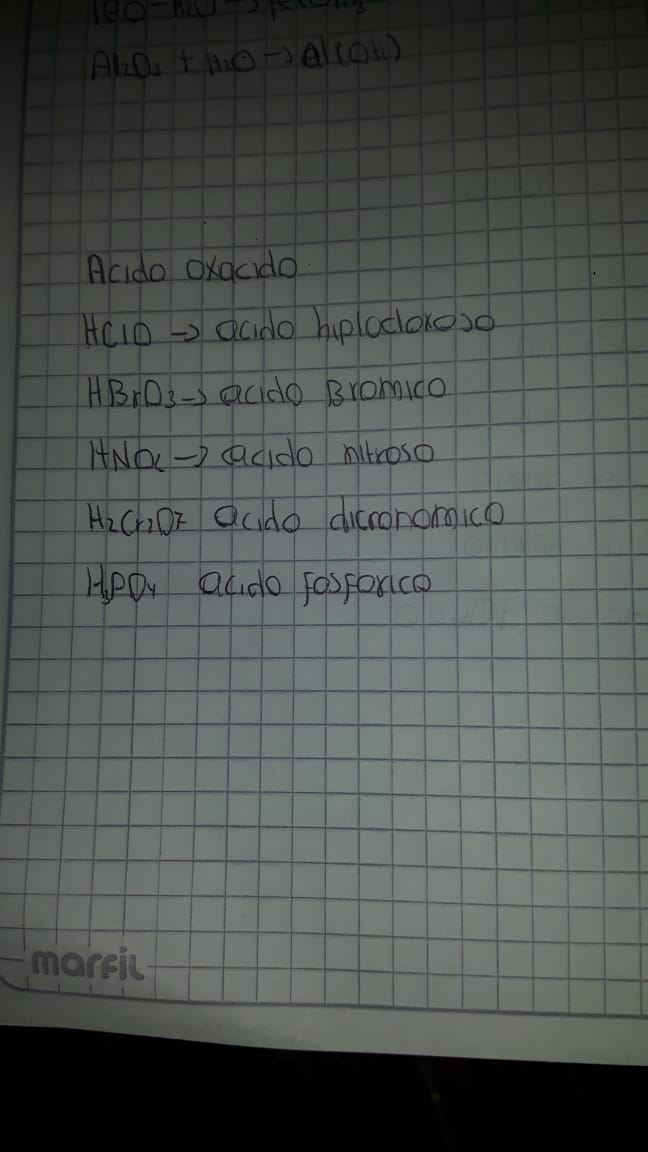 Al2O3 + H2O → Al(OH)
Acido oxacido
HClO → acido hiplocloroso
HBrO3 → acido Bromico
HNO2 → acido nitroso
H2Cr2O7 acido dicronomico
H3PO4 acido fosforico
marfil